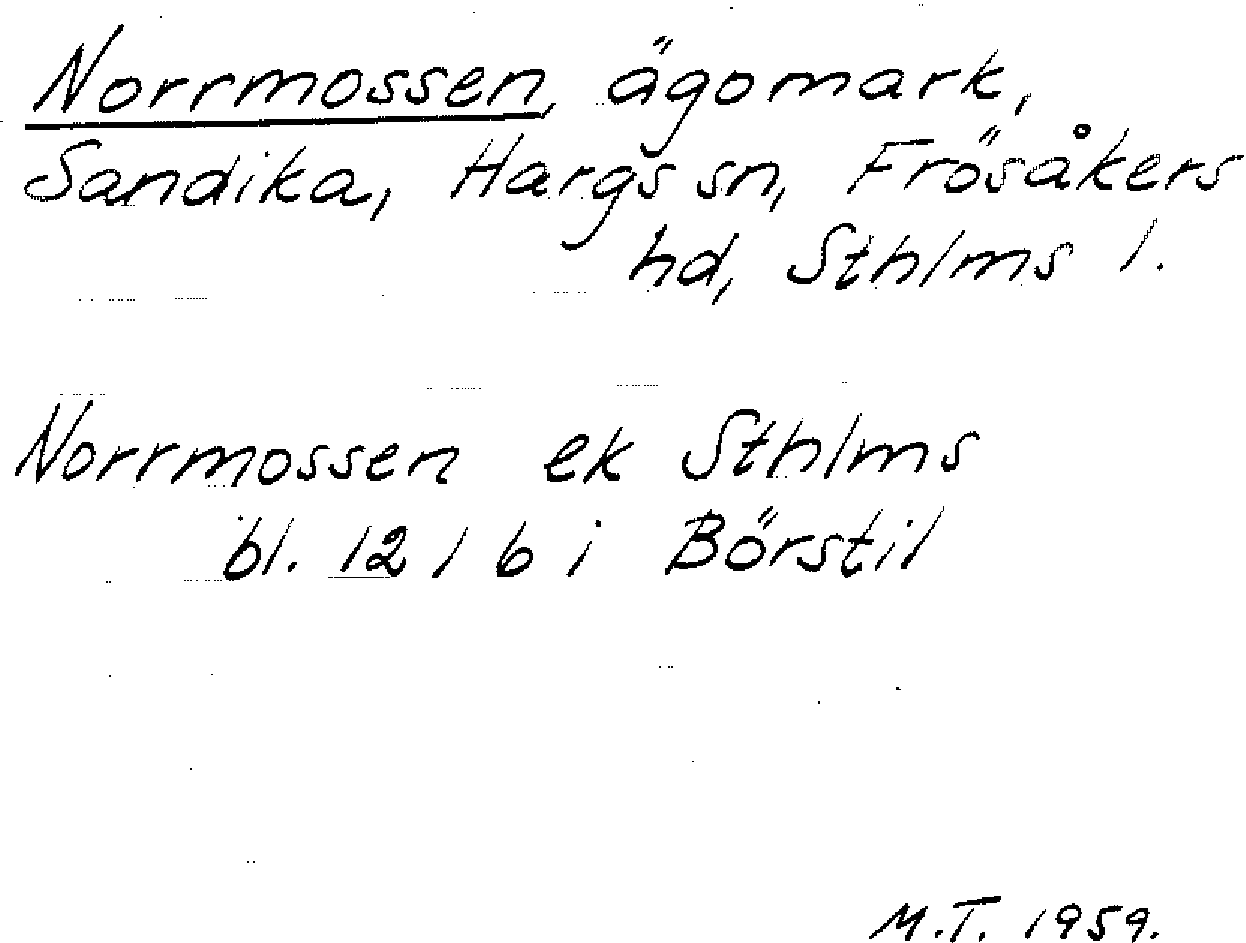 Norrmossen, ägomark,
Sandika, Hargs sn, Frösåkers
hd, Sthlms l.
Norrmossen ek Sthlms
bl. 12 / b i Börstil
M.T. 1959.